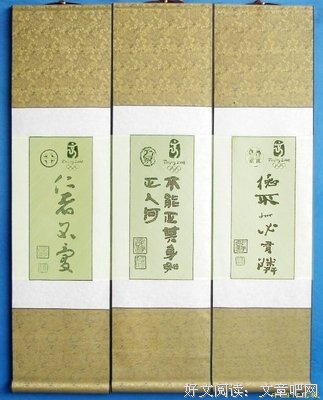 Beijing 2008
仁者不憂
Beijing 2008
不能正其身如
正人何
Beijing 2008
德不孤必有隣
好文阅读：文章吧网